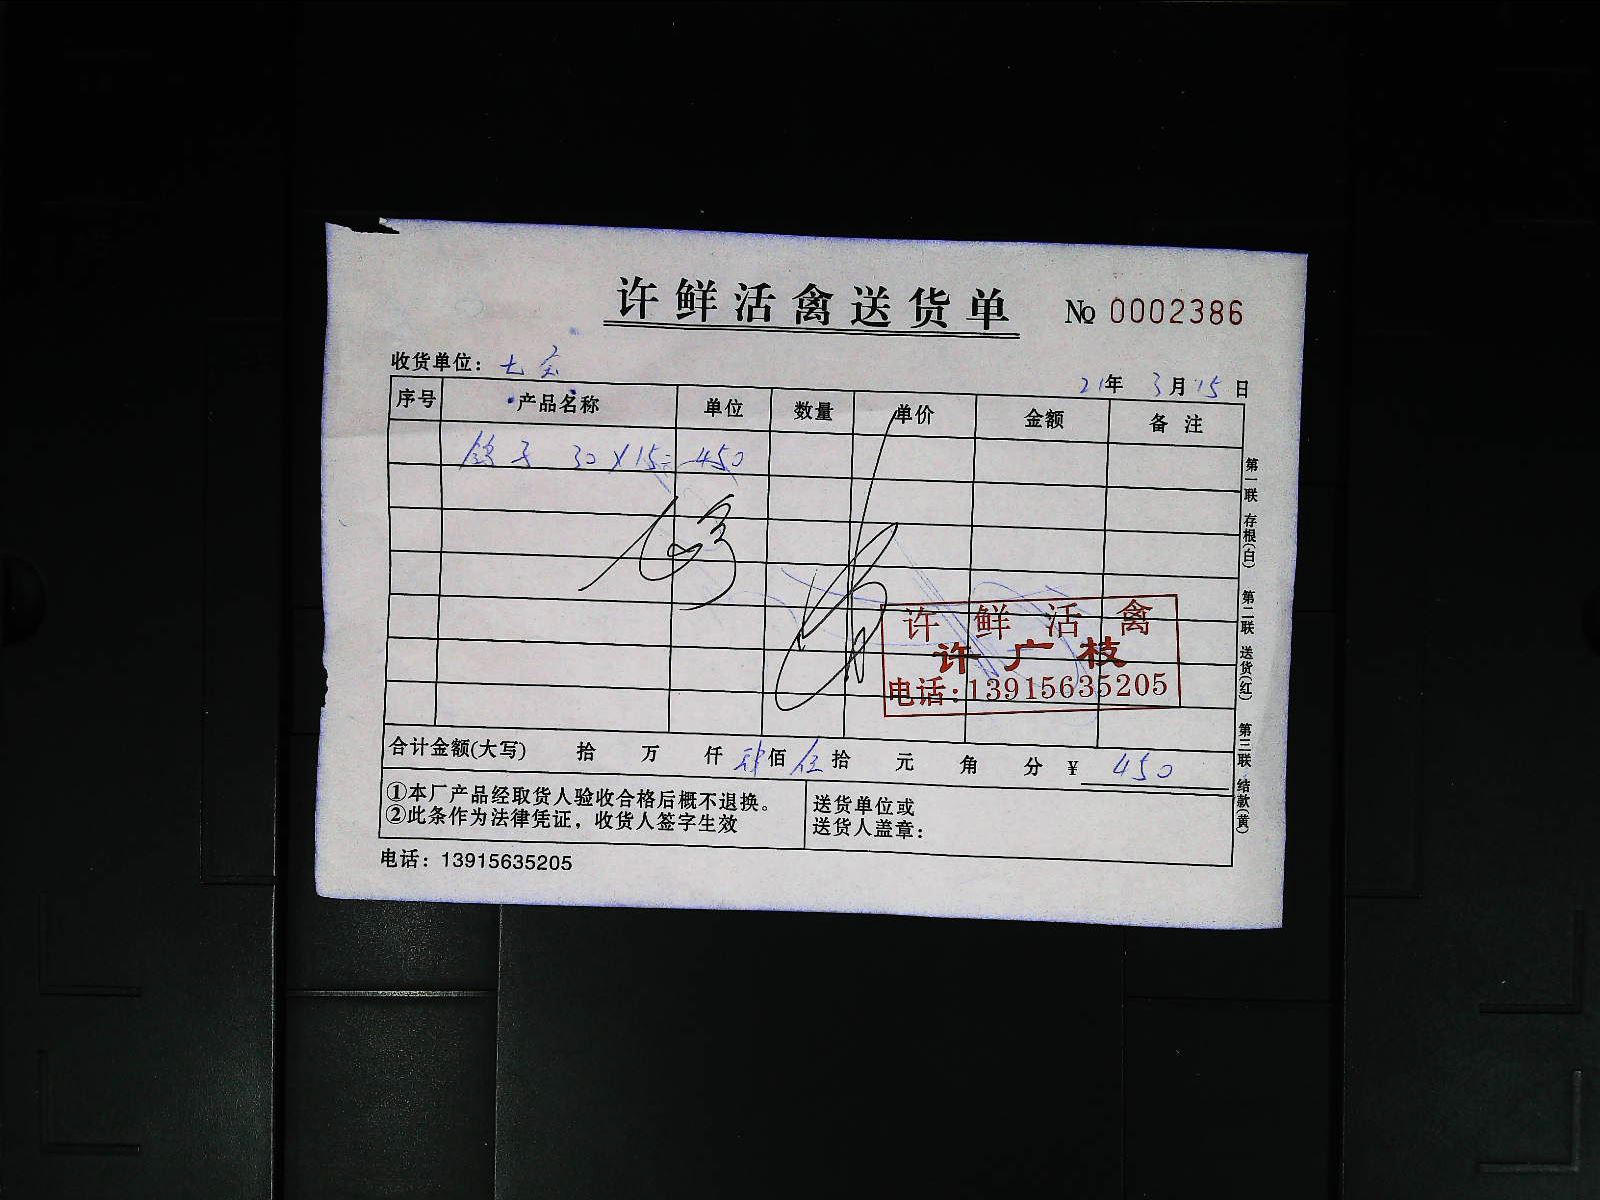 许鲜活禽送货单 № 0002386
收货单位：七宝
21年 3月15日
序号 产品名称 单位 数量 单价 金额 备注
鸽子 30×15=450
许鲜活禽
许广枝
电话:13915635205
合计金额(大写) 拾 万 仟 肆佰 伍拾 元 角 分 ¥ 450
①本厂产品经取货人验收合格后概不退换。
②此条作为法律凭证，收货人签字生效
送货单位或
送货人盖章：
电话：13915635205
第一联 存根(白) 第二联 送货(红) 第三联 结款(黄)